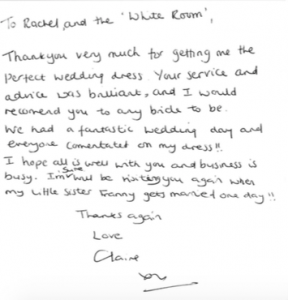 To Rachel, and the 'White Room',
Thankyou very much for getting me the
perfect wedding dress. Your service and
advice was brilliant, and I would
recomend you to any bride to be.
We had a fantastic wedding day and
everyone comentated on my dress!!
I hope all is well with you and business is
busy. I'm sure will be visiting you again when
my little sister Franny gets married one day!!
Thanks again
Love
Claire